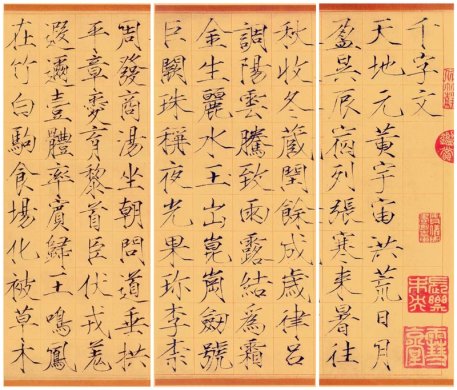 千字文
天地元黃宇宙洪荒日月
盈昃辰宿列張寒来暑往
秋收冬藏閏餘成歲律呂
調陽雲騰致雨露結爲霜
金生麗水玉出崑崗劒號
巨闕珠稱夜光果珎李柰
周發商湯坐朝問道垂拱
平章愛育黎首臣伏戎羌
遐邇壹體率賓歸王鳴鳳
在竹白駒食場化被草木